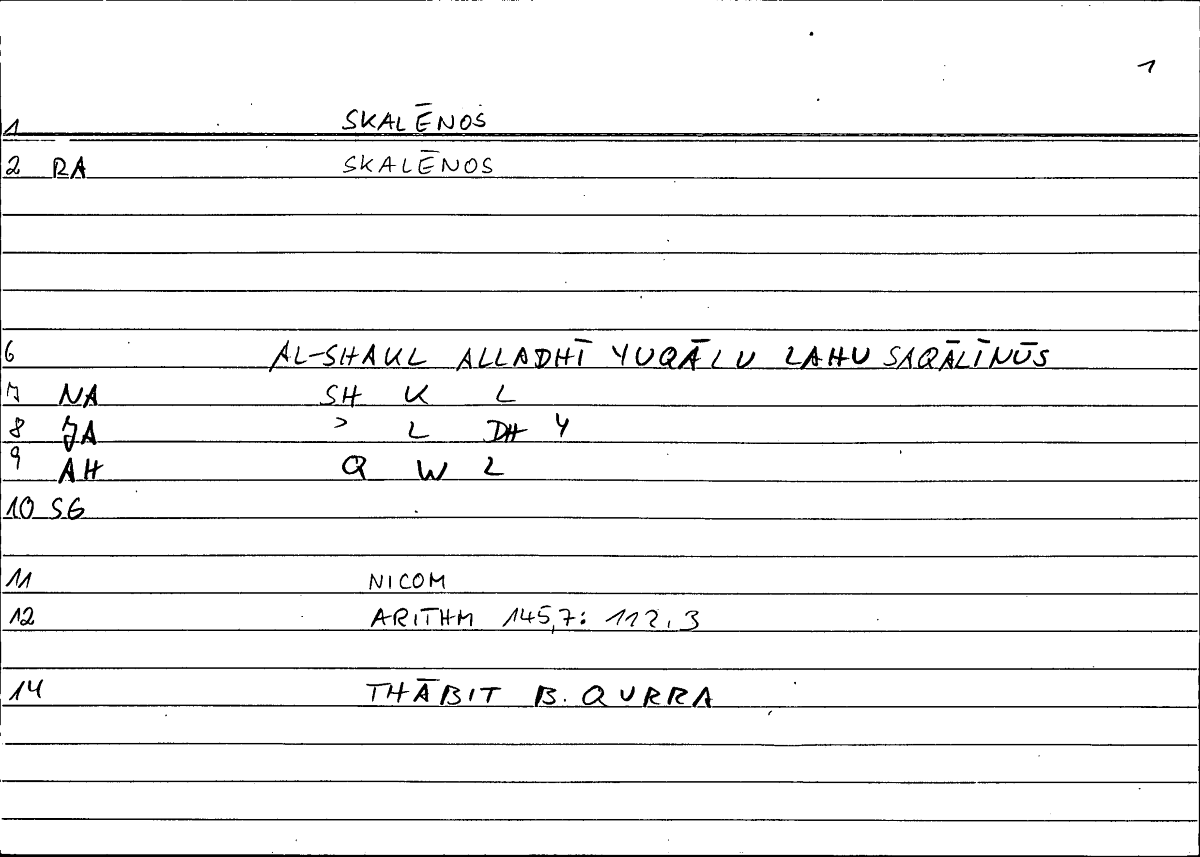 1
1 SKALĒNOS
2 RA SKALĒNOS
6 AL-SHAKL ALLADHĪ YUQĀLU LAHU SAQĀLĪNŪS
7 NA SH K L
8 JA ʾ L DH Y
9 AH Q W L
10 SG
11 NICOM
12 ARITHM 145,7: 112,3
14 THĀBIT B. QURRA